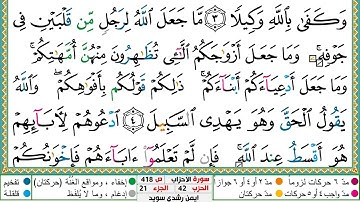 وَكَفَىٰ بِٱللَّهِ وَكِيلًا ٣ مَّا جَعَلَ ٱللَّهُ لِرَجُلٍ مِّن قَلْبَيْنِ فِى
جَوْفِهِۦ ۚ وَمَا جَعَلَ أَزْوَٰجَكُمُ ٱلَّٰٓـِٔى تُظَٰهِرُونَ مِنْهُنَّ أُمَّهَٰتِكُمْ ۚ
وَمَا جَعَلَ أَدْعِيَآءَكُمْ أَبْنَآءَكُمْ ۚ ذَٰلِكُمْ قَوْلُكُم بِأَفْوَٰهِكُمْ ۖ وَٱللَّهُ
يَقُولُ ٱلْحَقَّ وَهُوَ يَهْدِى ٱلسَّبِيلَ ٤ ٱدْعُوهُمْ لِـَٔابَآئِهِمْ
هُوَ أَقْسَطُ عِندَ ٱللَّهِ ۚ فَإِن لَّمْ تَعْلَمُوٓا۟ ءَابَآءَهُمْ فَإِخْوَٰنُكُمْ
مد ٦ حركات لزوما مد ٢ أو ٤ أو ٦ جوازا
مد واجب ٤ أو ٥ حركات مد حركتان
سورة الأحزاب ص 418
الحزب 42 الجزء 21
ايمن رشدي سويد
إخفاء، ومواقع الغنة (حركتان)
إدغام، وما لا يلفظ
تفخيم
قلقلة